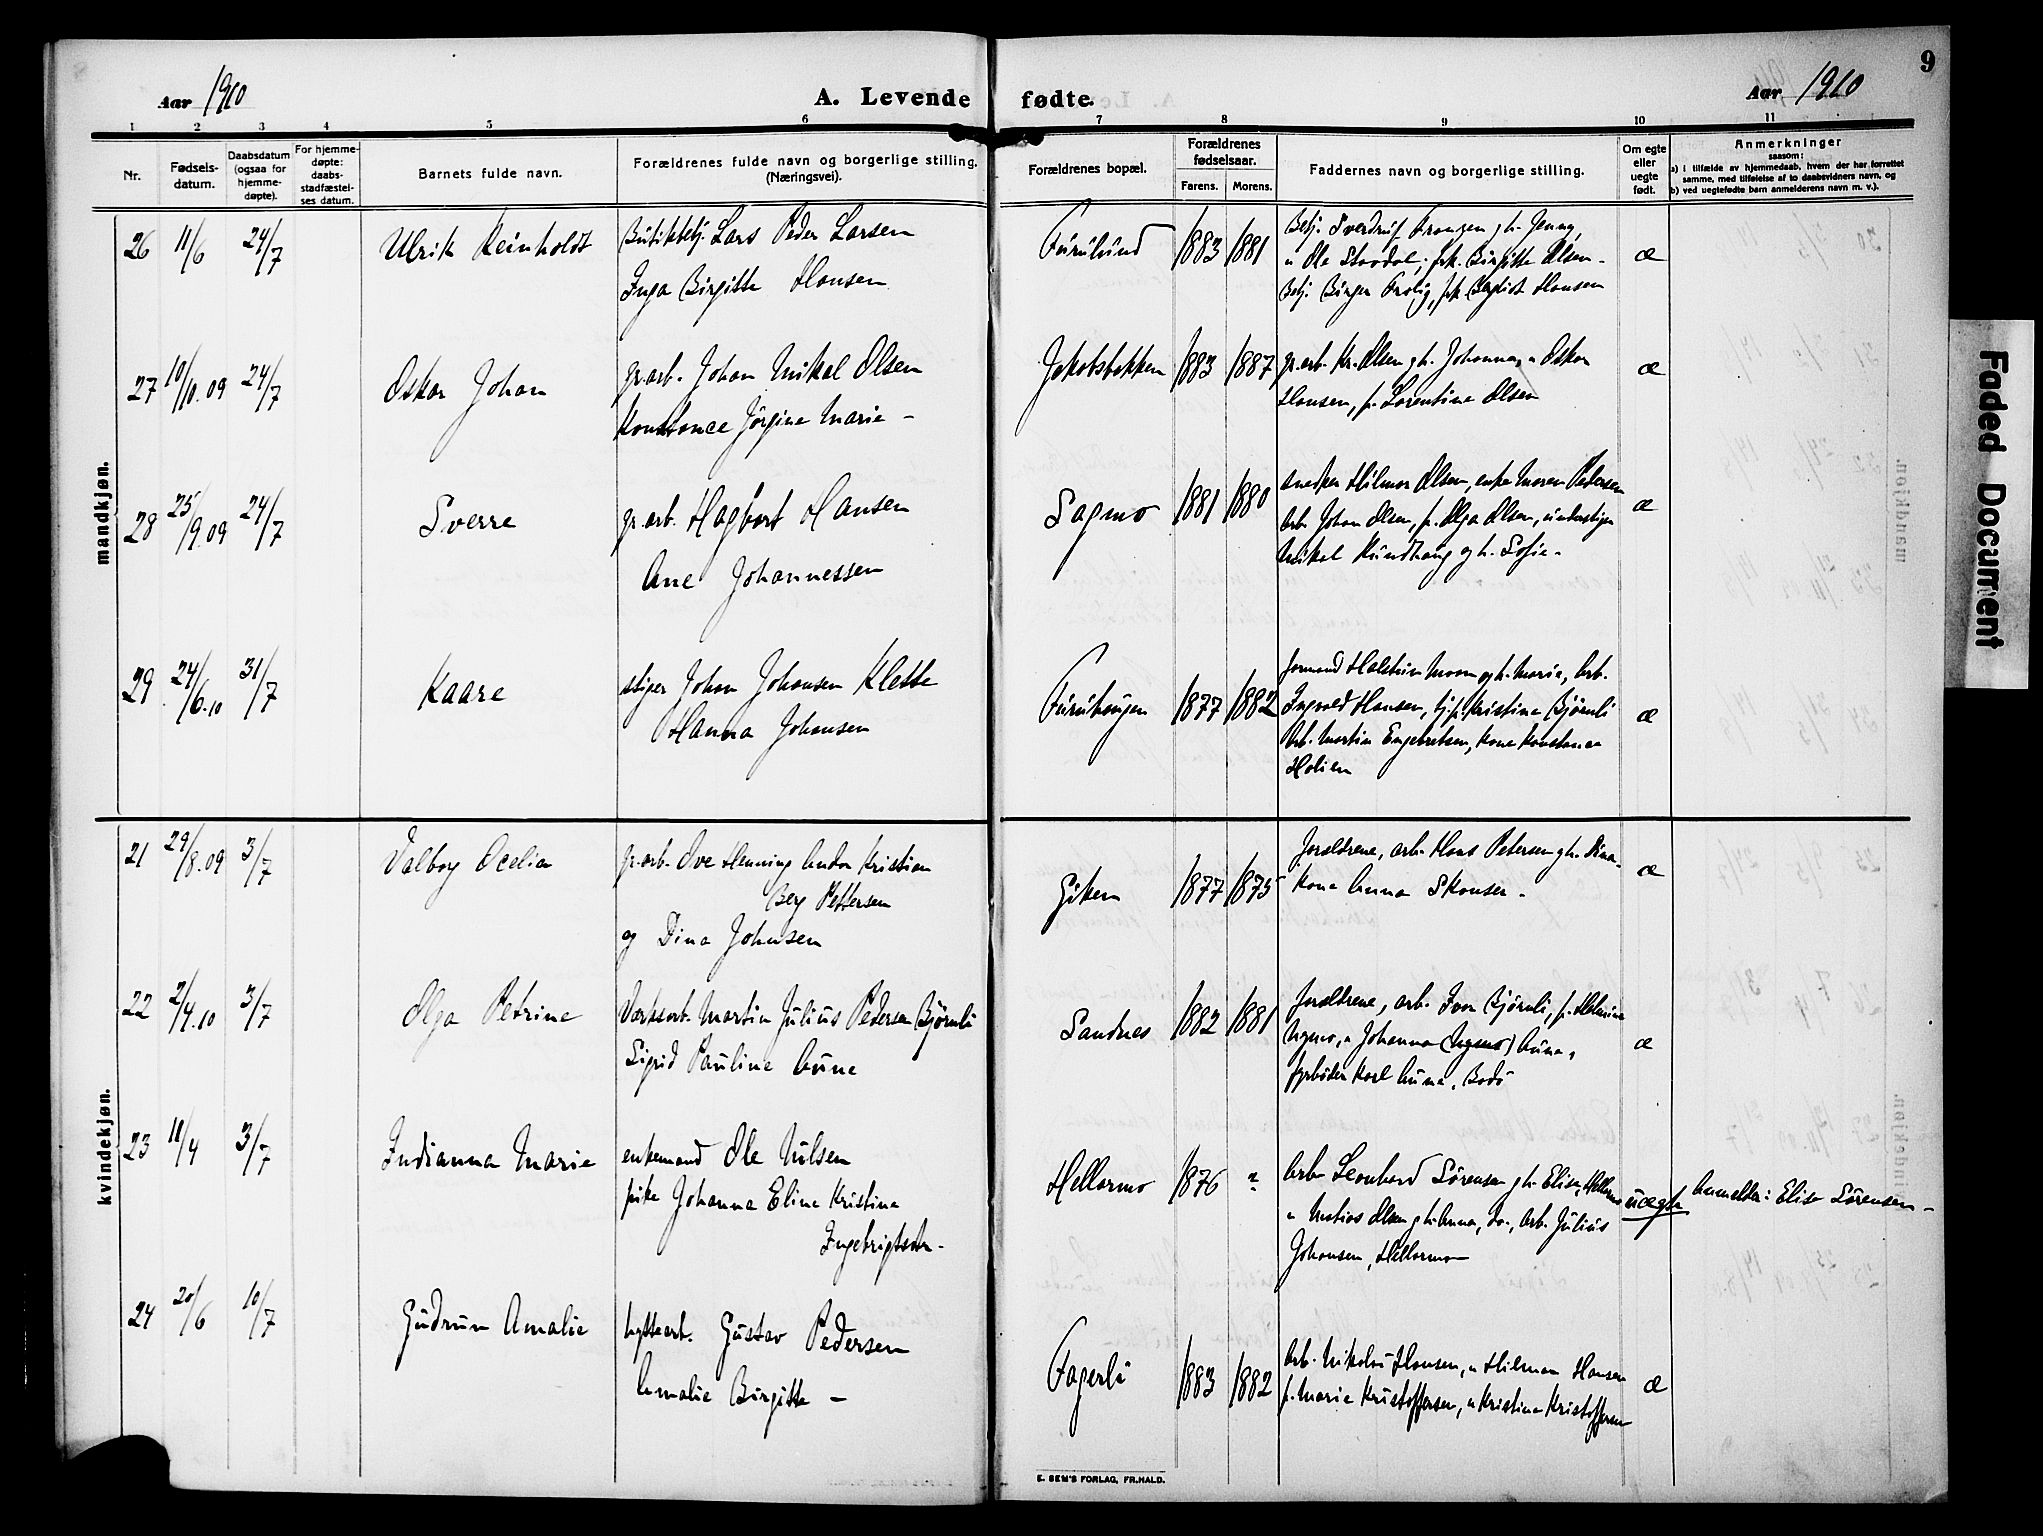 9
Aar 1910
A. Levende fødte.
Aar 1910
1 2 3 4 5 6 7 8 9 10 11
Nr.
Fødsels-
datum.
Daabsdatum
(ogsaa for
hjemme-
døpte).
For hjemme-
døpte:
daabs-
stadfæstel-
ses datum.
Barnets fulde navn.
Forældrenes fulde navn og borgerlige stilling.
(Næringsvei).
Forældrenes bopæl.
Forældrenes
fødselsaar.
Farens. Morens.
Faddernes navn og borgerlige stilling.
Om egte
eller
uegte
født.
Anmerkninger
saasom:
a) i tilfælde av hjemmedaab, hvem der har forrettet
samme, med tilføielse af to daabsvidners navn, og
b) ved uegtefødte barn anmelderens navn m. v.).
mandkjøn.
26 11/6 24/7 Ulrik Reinholdt
Butikbetj. Lars Peder Larsen
Inga Birgitte Hansen
Furulund 1883 1881
Betj. Sverdrup Frangen g h. Jenny,
u Ole Stordal, frk. Birgitte Olsen
Betj. Birger Frolig, frk Hansen
æ
27 10/10.09 24/7 Oskar Johan
gr.arb. Johan Mikal Olsen
Konstance Jørgine Marie –
Jakobsbakken 1883 1887
gr.arb. Kr. Olsen g h. Johanna, u Oskar
Hansen, p. Lorentine Olsen
æ
28 25/9.09 24/7 Sverre
gr.arb. Hagbart Hansen
Ane Johannessen
Sagmo 1881 1880
snedker Hilmar Olsen, enke Maren Pedersen
Arb. Johan Olsen, p. Olga Olsen, understiger
Mikal Rundhaug og h. Sofie.
æ
29 24/6.10 31/7 Kaare
stiger Johan Johansen Klette
Hanna Johansen
Furuhaugen 1877 1882
formand Halstein Moen og h. Marie, Arb.
Ingvald Hansen, tj.p. Kristine Bjørnli
Arb. Martin Engebretsen, Kone Konstance
Holien
æ
kvindekjøn.
21 29/8.09 3/7 Valborg Ocelia
gr.arb. Ove Henning Andor Kristian
Berg Pettersen
og Dina Johnsen
Giken 1877 1875
forældrene, arb. Hans Petersen g h. Dina.
Kone Anna Skonser.
æ
22 2/4.10 3/7 Olga Petrine
Værksarb. Martin Julius Pedersen Bjørnli
Sigrid Pauline Aune
Sandnes 1882 1881
forældrene, arb. Ivar Bjørnli, p. Helmine
Nymo, u Johanna (Nymo) Aune,
fyrbøder Karl Aune, Bodø
æ
23 11/4 3/7 Indianna Marie
enkemand Ole Nilsen
pike Johanna Eline Kristine
Ingebrigtsdtr.
Hellarmo 1876 ?
Arb Leonhard Sørensen g h. Elise, Hellarmo
u Matias Olsen g h. Anna, do., Arb. Julius
Johansen, Hellarmo
uægte Anmelder: Elise Sørensen –
24 20/6 10/7 Gudrun Amalie
hyttearb. Gustav Pedersen
Amalie Birgitte –
Fagerli 1883 1882
Arb. Nikolai Hansen, u Hilman Hansen
p. Marie Kristoffersen, u Kristine Kristoffersen
æ
E. SEM'S FORLAG, FR.HALD.
Faded Document